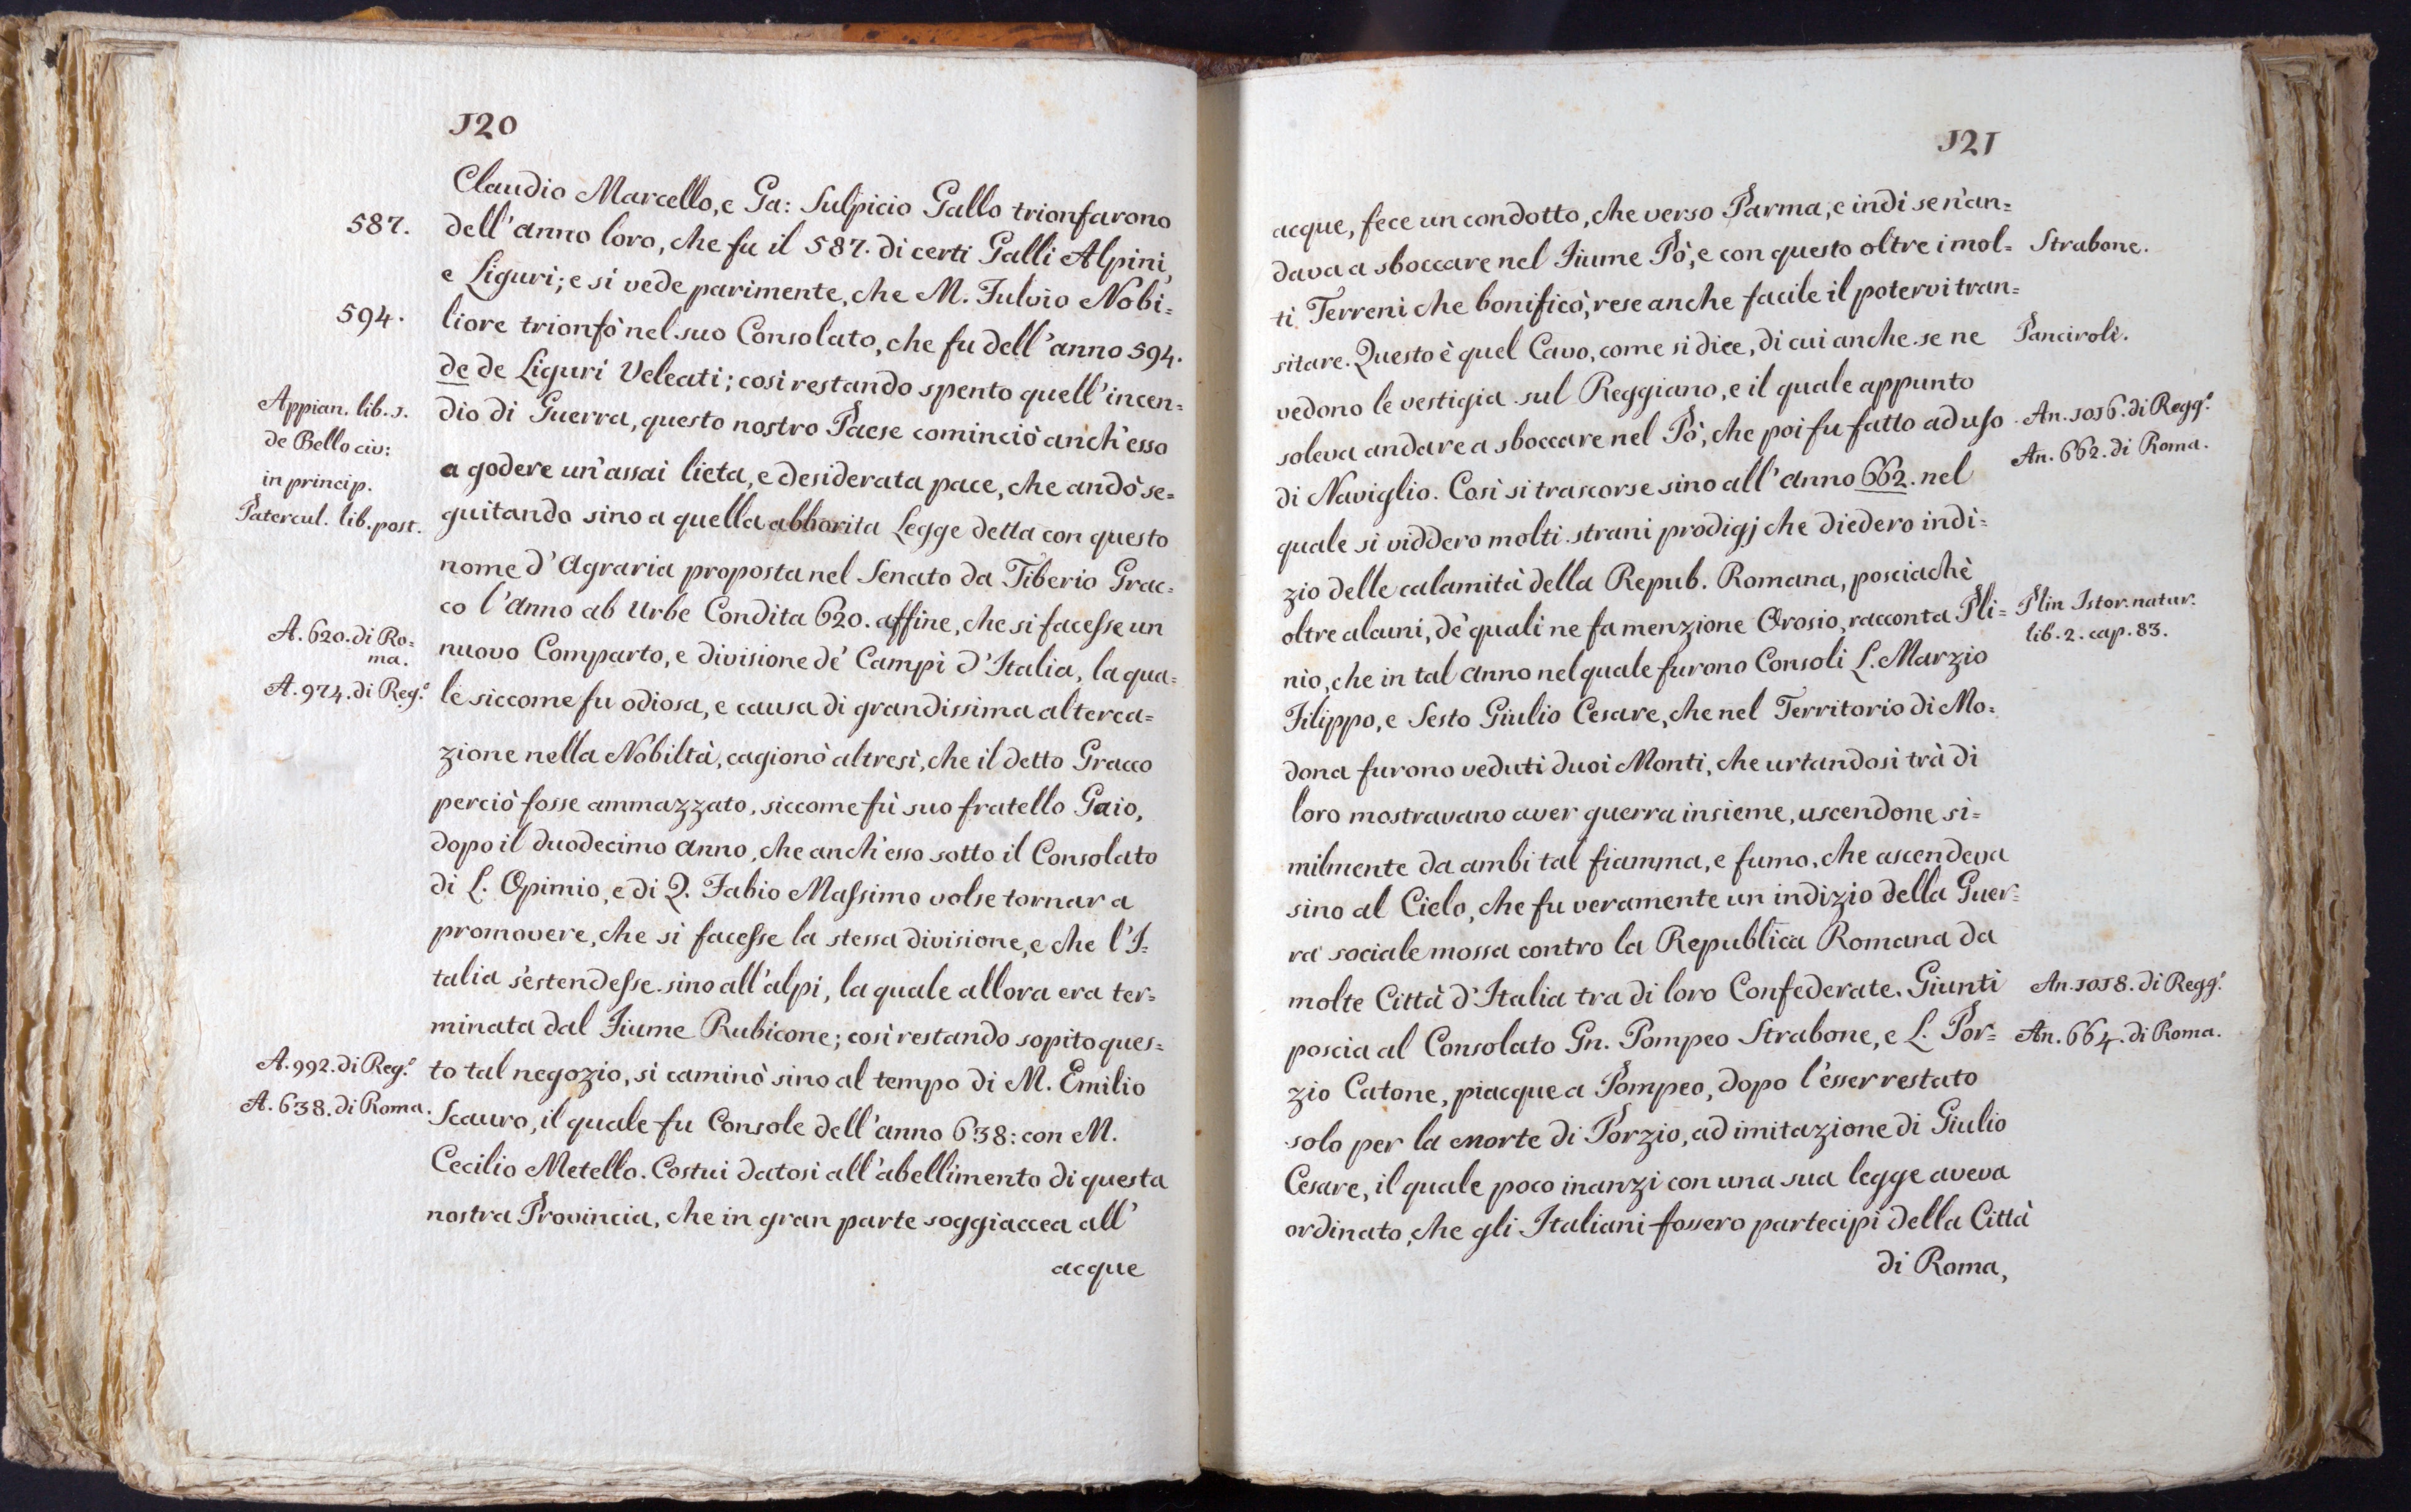 120
Claudio Marcello, e Ga: Sulpicio Gallo trionfarono
587.
dell'anno loro, che fu il 587. di certi Galli Alpini,
e Liguri; e si vede parimente, che M. Fulvio Nobi=
594.
liore trionfò nel suo Consolato, che fu dell'anno 594.
de de Liguri Veleati; così restando spento quell'incen=
Appian. lib. 1.
de Bello civ:
in princip.
Patercul. lib. post.
dio di Guerra, questo nostro Paese cominciò anch'esso
a godere un'assai lieta, e desiderata pace, che andò se=
guitando sino a quella abborita Legge detta con questo
nome d'Agraria proposta nel Senato da Tiberio Grac=
co l'Anno ab Urbe Condita 620. affine, che si facesse un
A. 620. di Ro=
ma.
nuovo Comparto, e divisione de' Campi d'Italia, la qua=
A. 974. di Reg.º
le siccome fu odiosa, e causa di grandissima alterca=
zione nella Nobiltà, cagionò altresì, che il detto Gracco
perciò fosse ammazzato, siccome fù suo fratello Gaio,
dopo il duodecimo anno, che anch'esso sotto il Consolato
di L. Opimio, e di Q. Fabio Massimo volse tornar a
promovere, che si facesse la stessa divisione, e che l'I=
talia s'estendesse sino all'alpi, la quale allora era ter=
minata dal Fiume Rubicone; così restando sopito ques=
A. 992. di Reg.º
to tal negozio, si caminò sino al tempo di M. Emilio
A. 638. di Roma.
Scauro, il quale fu Console dell'anno 638: con M.
Cecilio Metello. Costui datosi all'abellimento di questa
nostra Provincia, che in gran parte soggiaccea all'
acque
121
acque, fece un condotto, che verso Parma, e indi se n'an=
dava a sboccare nel Fiume Pò, e con questo oltre i mol=
Strabone.
ti Terreni che bonificò, rese anche facile il potervi tran=
sitare. Questo è quel Cavo, come si dice, di cui anche se ne
Panciroli.
vedono le vestigia sul Reggiano, e il quale appunto
soleva andare a sboccare nel Pò, che poi fu fatto ad uso
An. 1016. di Regg.º
An. 662. di Roma.
di Naviglio. Così si trascorse sino all'anno 662. nel
quale si viddero molti strani prodigj che diedero indi=
zio delle calamità della Repub. Romana, posciachè
oltre alcuni, de' quali ne fa menzione Orosio, racconta Pli=
Plin Istor. natur.
lib. 2. cap. 83.
nio, che in tal anno nel quale furono Consoli L. Marzio
Filippo, e Sesto Giulio Cesare, che nel Territorio di Mo=
dona furono veduti duoi Monti, che urtandosi trà di
loro mostravano aver guerra insieme, uscendone si=
milmente da ambi tal fiamma, e fumo, che ascendeva
sino al Cielo, che fu veramente un indizio della Guer=
ra sociale mossa contro la Republica Romana da
molte Città d'Italia tra di loro Confederate. Giunti
An. 1018. di Regg.º
poscia al Consolato Gn. Pompeo Strabone, e L. Por=
An. 664. di Roma.
zio Catone, piacque a Pompeo, dopo l'esser restato
solo per la morte di Porzio, ad imitazione di Giulio
Cesare, il quale poco inanzi con una sua legge aveva
ordinato, che gli Italiani fossero partecipi della Città
di Roma,